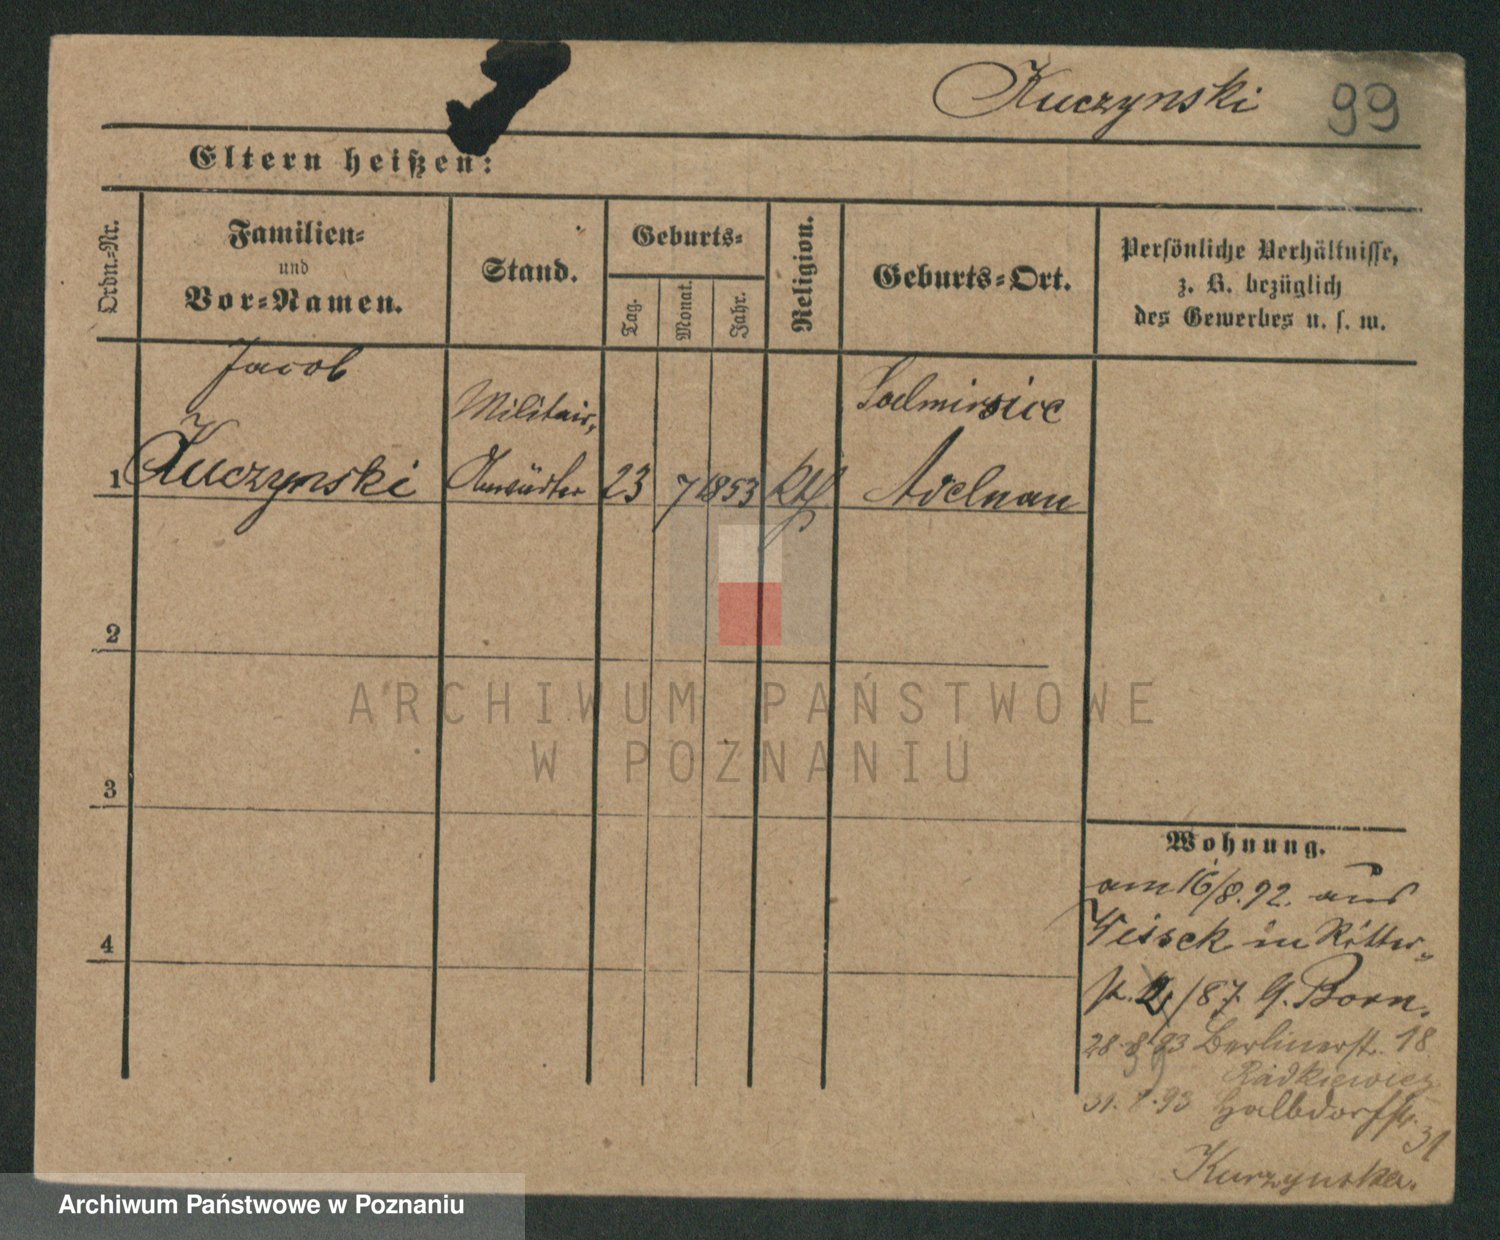 Kuczynski 99
Eltern heißen:
Ordn.-Nr.
Familien-
und
Vor-Namen.
Stand.
Geburts-
Tag.
Monat.
Jahr.
Religion.
Geburts-Ort.
Persönliche Verhältnisse,
z. B. bezüglich
des Gewerbes u. s. w.
Jacob
Militair,
1 Kuczynski 23 7 1853 kth Adelnau
2
3
4
ARCHIWUM PAŃSTWOWE
W POZNANIU
Wohnung.
am 16/8. 92. aus
in Ritter-
st. 2/87. G. Born.
28. 8 93 Berlinerstr. 18
Radkiewicz
31. 93 Halbdorfstr. 31
Kurzynska.
Archiwum Państwowe w Poznaniu